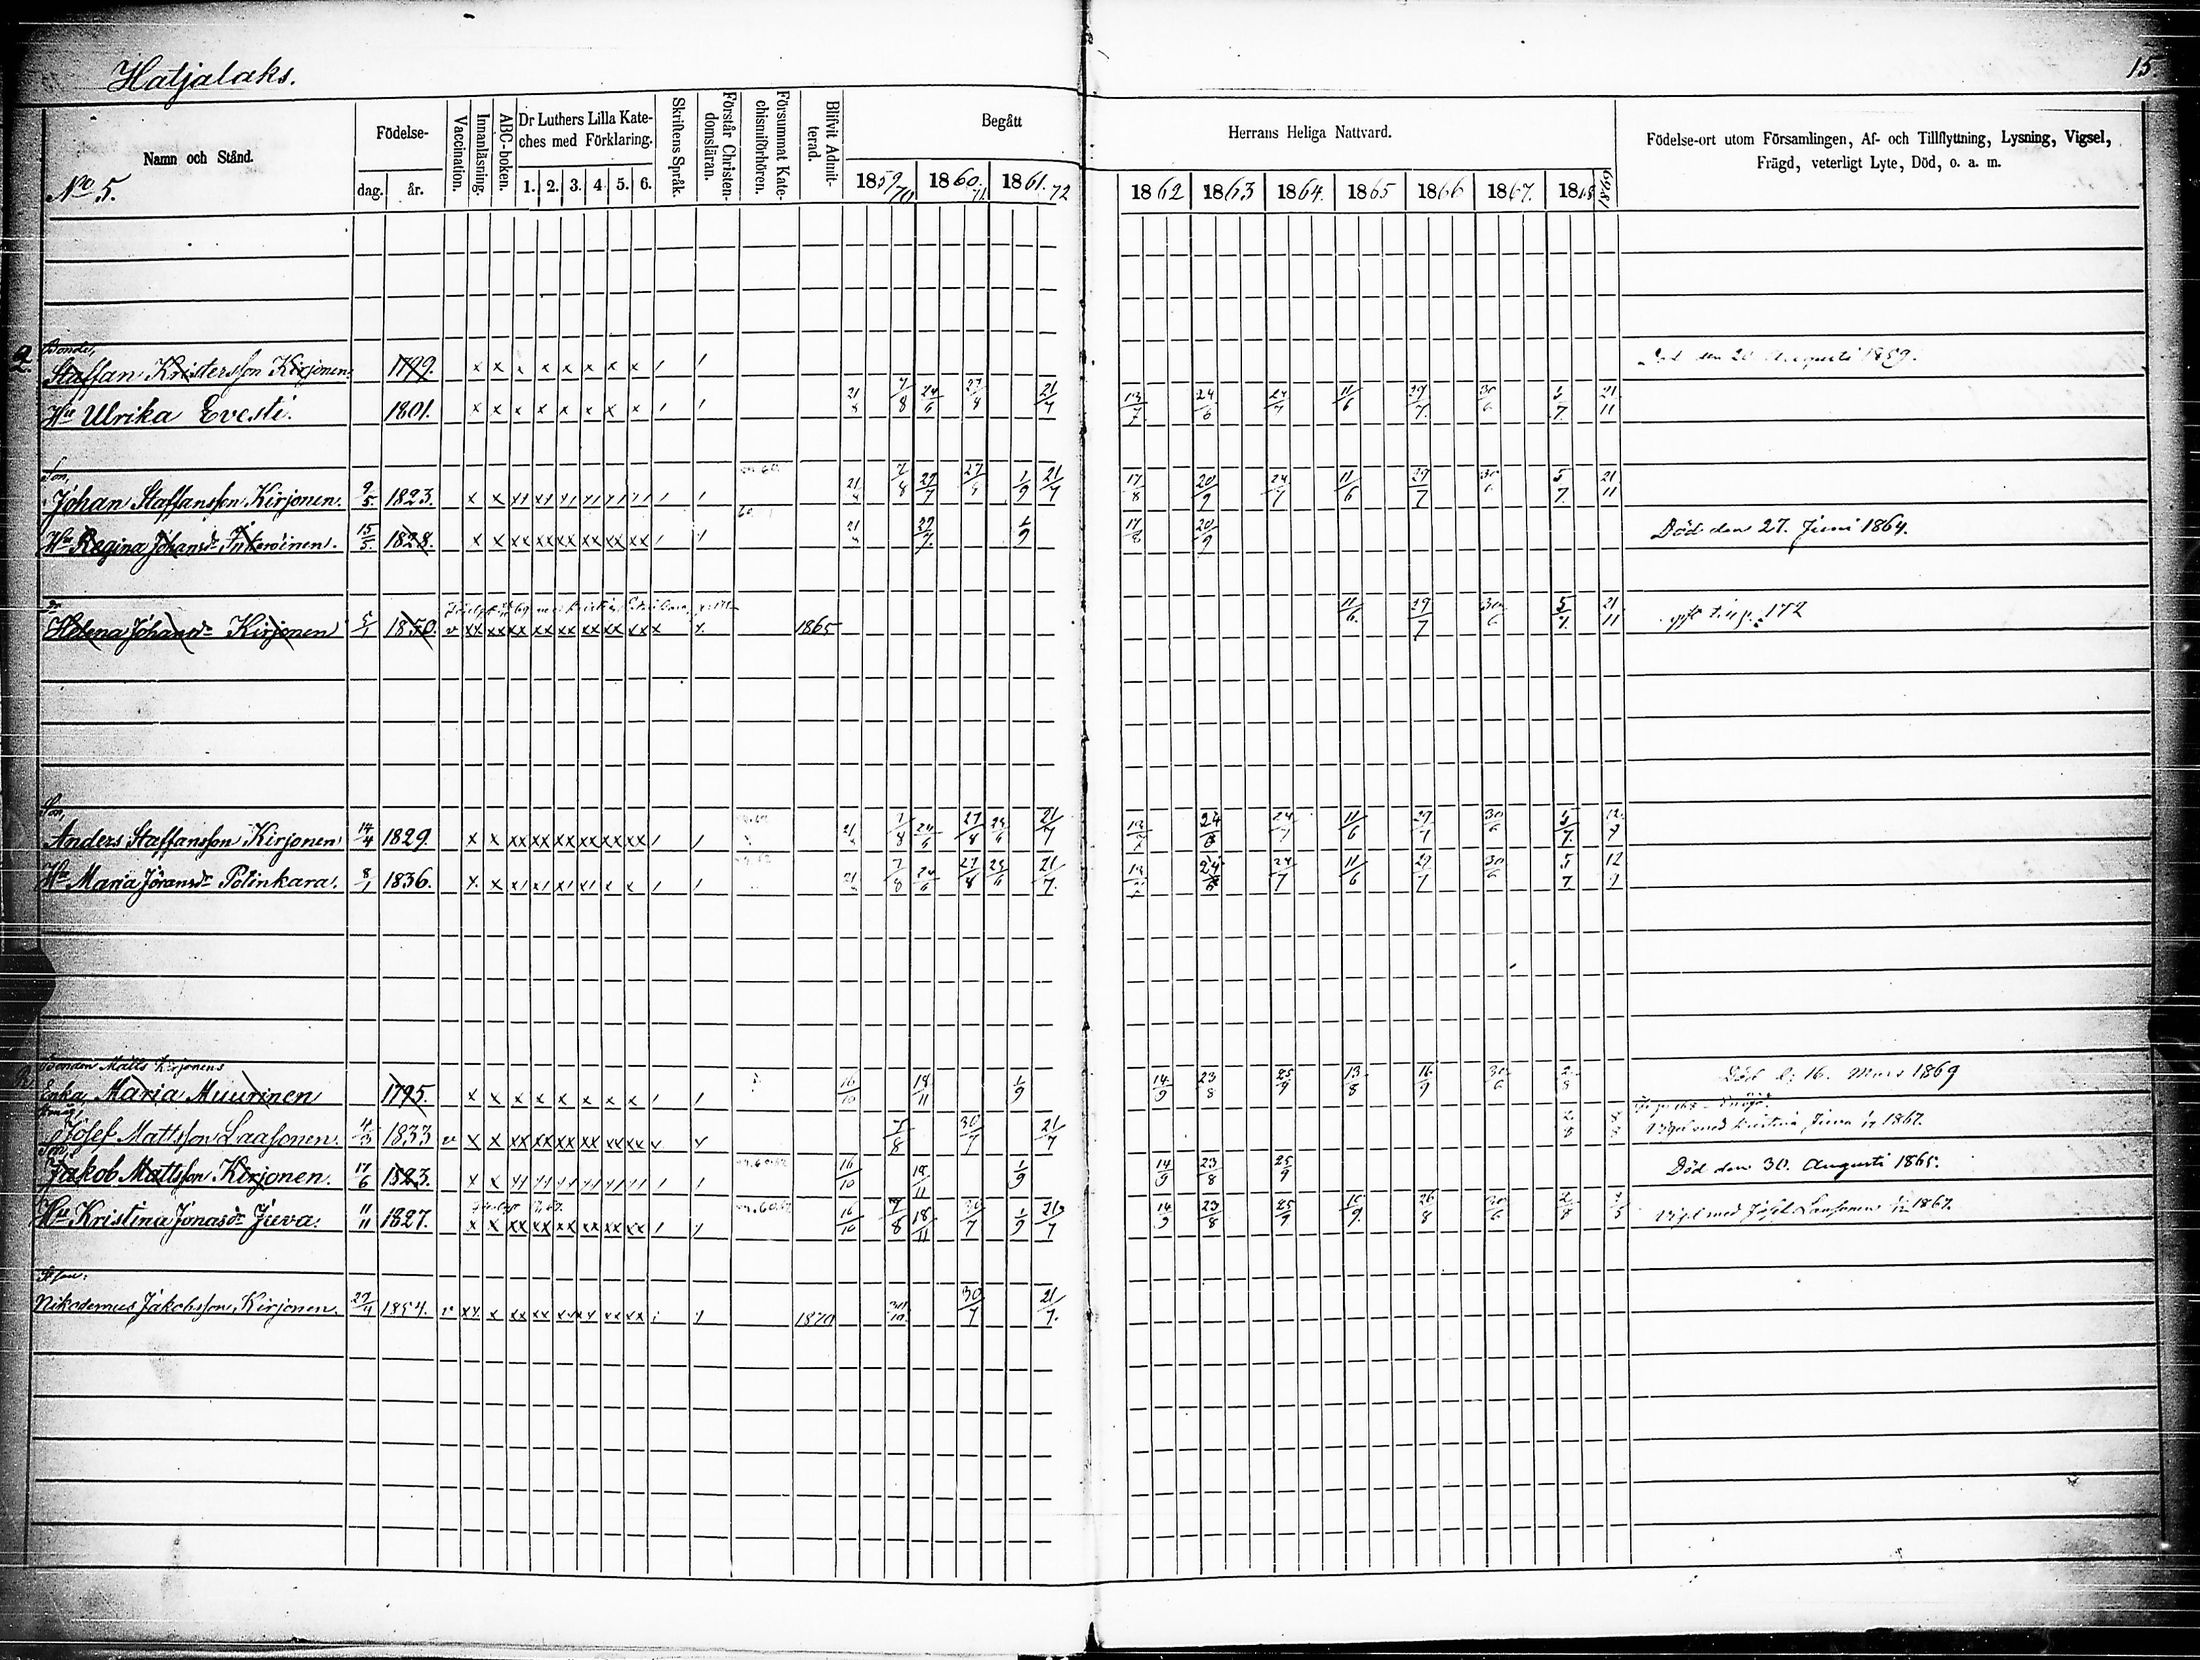 Hatjalaks.
15
Namn och Stånd.
No 5.
Födelse-
dag. år.
Vaccination.
Innanläsning.
ABC-boken.
Dr Luthers Lilla Kate-
ches med Förklaring.
1. 2. 3. 4. 5. 6.
Skriftens Språk.
Förstår Christen-
domsläran.
Försummat Kate-
chismiförhören.
Blifvit Admit-
terad.
Begått
1859/70 1860/71 1861/72
Herrans Heliga Nattvard.
1862 1863 1864. 1865 1866 1867. 1868 1869
Födelse-ort utom Församlingen, Af- och Tillflyttning, Lysning, Vigsel,
Frägd, veterligt Lyte, Död, o. a. m.
2.
Bonde,
Staffan Kristersson Kirjonen. 1799. x x x x x x x x / / Död den 20 Augusti 1859.
Hu Ulrika Evesti. 1801. x x x x x x x x / / 21/8 7/8 24/6 27/8 21/7 13/7 24/6 24/7 11/6 29/7. 30/6 5/7. 21/11
Son,
Johan Staffansson Kirjonen. 9/5 1823. 21/8 7/8 29/7 27/8 1/9 21/7 17/8 20/9 24/7 11/6 29/7 30/6 5/7. 21/11
Hu Regina Johansdr 15/5. 1828. 21/8 29/7. 1/9 17/8 20/9 Död den 27. Juni 1864.
dr
Helena Johansdr Kirjonen 5/1 1850. v xx xx xx xx xx xx xx xx x x. 1865 11/6. 29/7 30/6 5/7. 21/11 gift t. n p. 172
Son,
Anders Staffansson Kirjonen 14/4 1829. x x xx xx xx xx xx xx / / 21/8 7/8 24/6 27/8 24/6 21/7 13/7 24/6 24/7 11/6 29/7 30/6 5/7. 12/9
Hu Maria Jöransdr Polinkara. 8/1 1836. 21/8 7/8 24/6 27/8 24/6 21/7. 13/7 24/6 24/7 11/6 29/7 30/6 5/7 12/9
Bonden Matts Kirjonens
Enka, Maria Muurinen 1795. x x x x x x x x / / 16/10 18/11 1/9 14/9 23/8 25/9 13/8 16/9 30/6 2/8 Död d. 16. Mars 1869
Måg,
Josef Mattsson Laasonen. 4/3 1833 v x x xx xx xx xx xx xx 7/8 30/7 21/7 2/8 8/8 Vigd med Kristina Juva 1867.
Son,
Jakob Mattsson Kirjonen. 17/6 1823. 16/10 18/11 1/9 14/9 23/8 25/9 Död den 30. Augusti 1865.
Hu Kristina Jonasdr Juva. 11/11 1827. x x xx xx xx xx xx xx / / 16/10 7/8 18/11 30/7 1/9 21/7 14/9 23/8 25/9 16/9. 26/8 30/6 2/8 Vigd med Josef Laasonen 1867.
Nikodemus Jakobsson Kirjonen. 27/4 1854. v xx x xx xx xx xx xx xx 1870 30/10. 30/7 21/7.